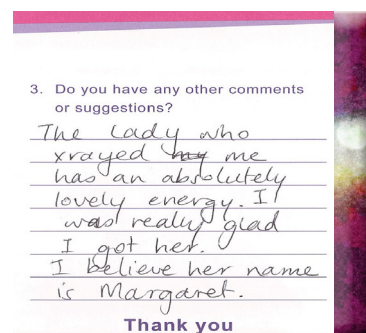 3. Do you have any other comments
or suggestions?
The Lady who
xrayed my me
has an absolutely
lovely energy. I
was really glad
I got her.
I believe her name
is Margaret.
Thank you